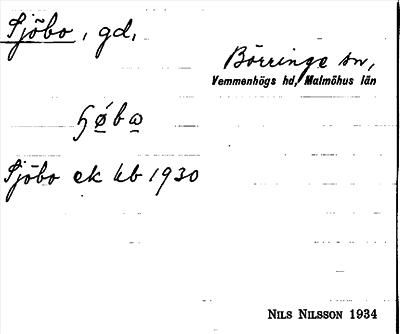 Sjöbo, gd,
Börringe sn,
Vemmenhögs hd, Malmöhus län
ɧøbo
Sjöbo ek kb 1930
NILS NILSSON 1934